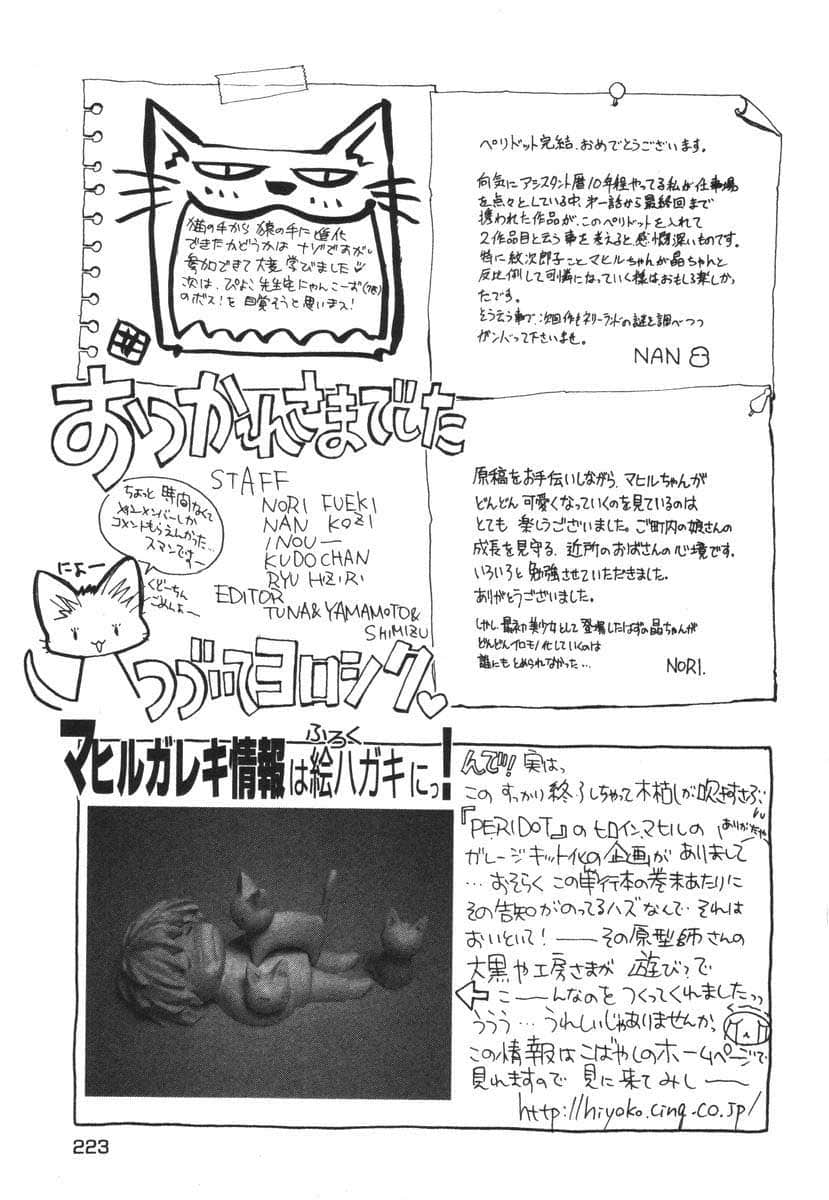 猫の手から猿の手に進化
できたかどうかはナゾですが
参加できて大変学びました
次は、ぴよこ先生宅にゃんこーず
のボス!を目覚そうと思いまス!
ペリドット完結、おめでとうございます。
何気にアシスタント暦10年程やってる私が仕事場
を点々としている中、第一話から最終回まで
携われた作品が、このペリドットを入れて
2作品目と云う事を考えると、感慨深いものです。
特に紋次郎子ことマヒルちゃんが晶ちゃんと
反比例して可憐になっていく様はおもしろ楽しかっ
たです。
そう云う事で、次回作もネリーランドの謎を調べつつ
ガンバって下さいませ。
NAN
おつかれさまでした
STAFF
NORI FUEKI
NAN KOZI
INOUー
KUDOCHAN
RYU HIZIRI
EDITOR
TUNA&YAMAMOTO&
SHIMIZU
ちょっと時間なくて
メインメンバーしか
コメントもらえんかった…
スマンですー
くどーちん
ごめんよー
にょー
つづいてヨロシク♡
原稿をお手伝いしながら、マヒルちゃんが
どんどん可愛くなっていくのを見ているのは
とても楽しうございました。ご町内の娘さんの
成長を見守る、近所のおばさんの心境です。
いろいろと勉強させていただきました。
ありがとうございました。
しかし、最初美少女として登場したはずの晶ちゃんが
どんどんイロモノ化していくのは
誰にもとめられなかった…
NORI.
マヒルガレキ情報は絵ハガキにっ!
ふろく
んで!!実はっ
このすっかり終了しちゃって木枯しが吹きすさぶ
『PERIDOT』のヒロインマヒルの
ありがたや
ガレージキット化の企画がありまして
…おそらくこの単行本の巻末あたりに
その告知がのってるハズなんで それは
おいといて!――その原型師さんの
大黒や工房さまが 遊びっで
こーーんなのをつくってくれましたっっ
ううう…うれしいじゃありませんか
この情報はこばやしのホームページで
見れますので見に来てみしーー
http://hiyoko.cing.co.jp/
223